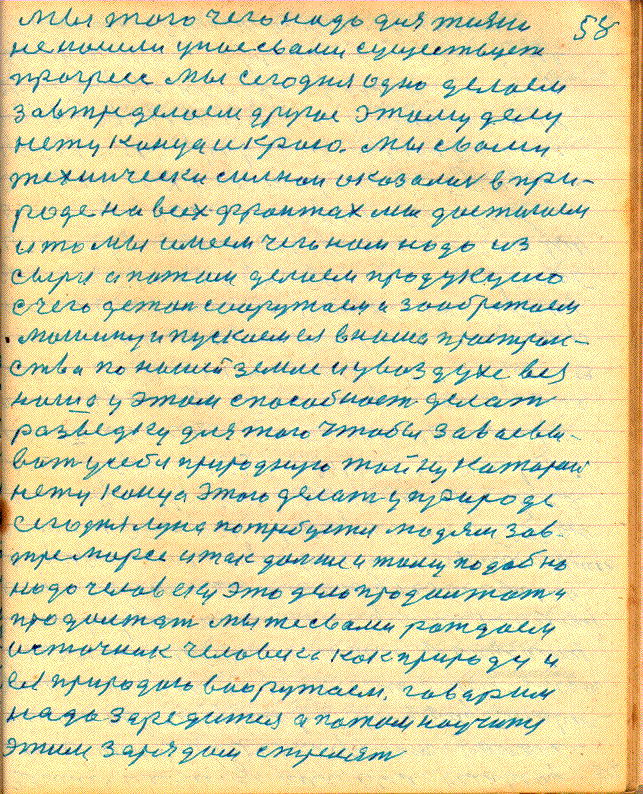 58
Мы того чего надо для жизни
не нашли у нас свами существует
прогресс Мы сегодня одно делаем
завтри делаем другое Этому делу
нету конца и краю. Мы свами
технически сильнои оказалис в при-
роде на всех фронтах мы достигаем
и то мы имеем чего нам надо из
сыря а потом делаем продукцию
с чего детал сооружаем и зообретаем
машину и пускаем ея внаша простран-
ства по нашей земле и увоздухе вся
наша у этом способност делат
разведку для того чтобы завоевы-
ват усебя природную тайну каторай
нету конца Этого делат у природе
сегодня луна потребуется людям зав-
тре марсе и так далие и тому подобно
надо человеку это дело продолжат и
продолжат мы же свами рождаем
источник человека как природу и
ея природою вооружаем. гаварим
надо заредится а потом научитя
этим зарядом стрелят